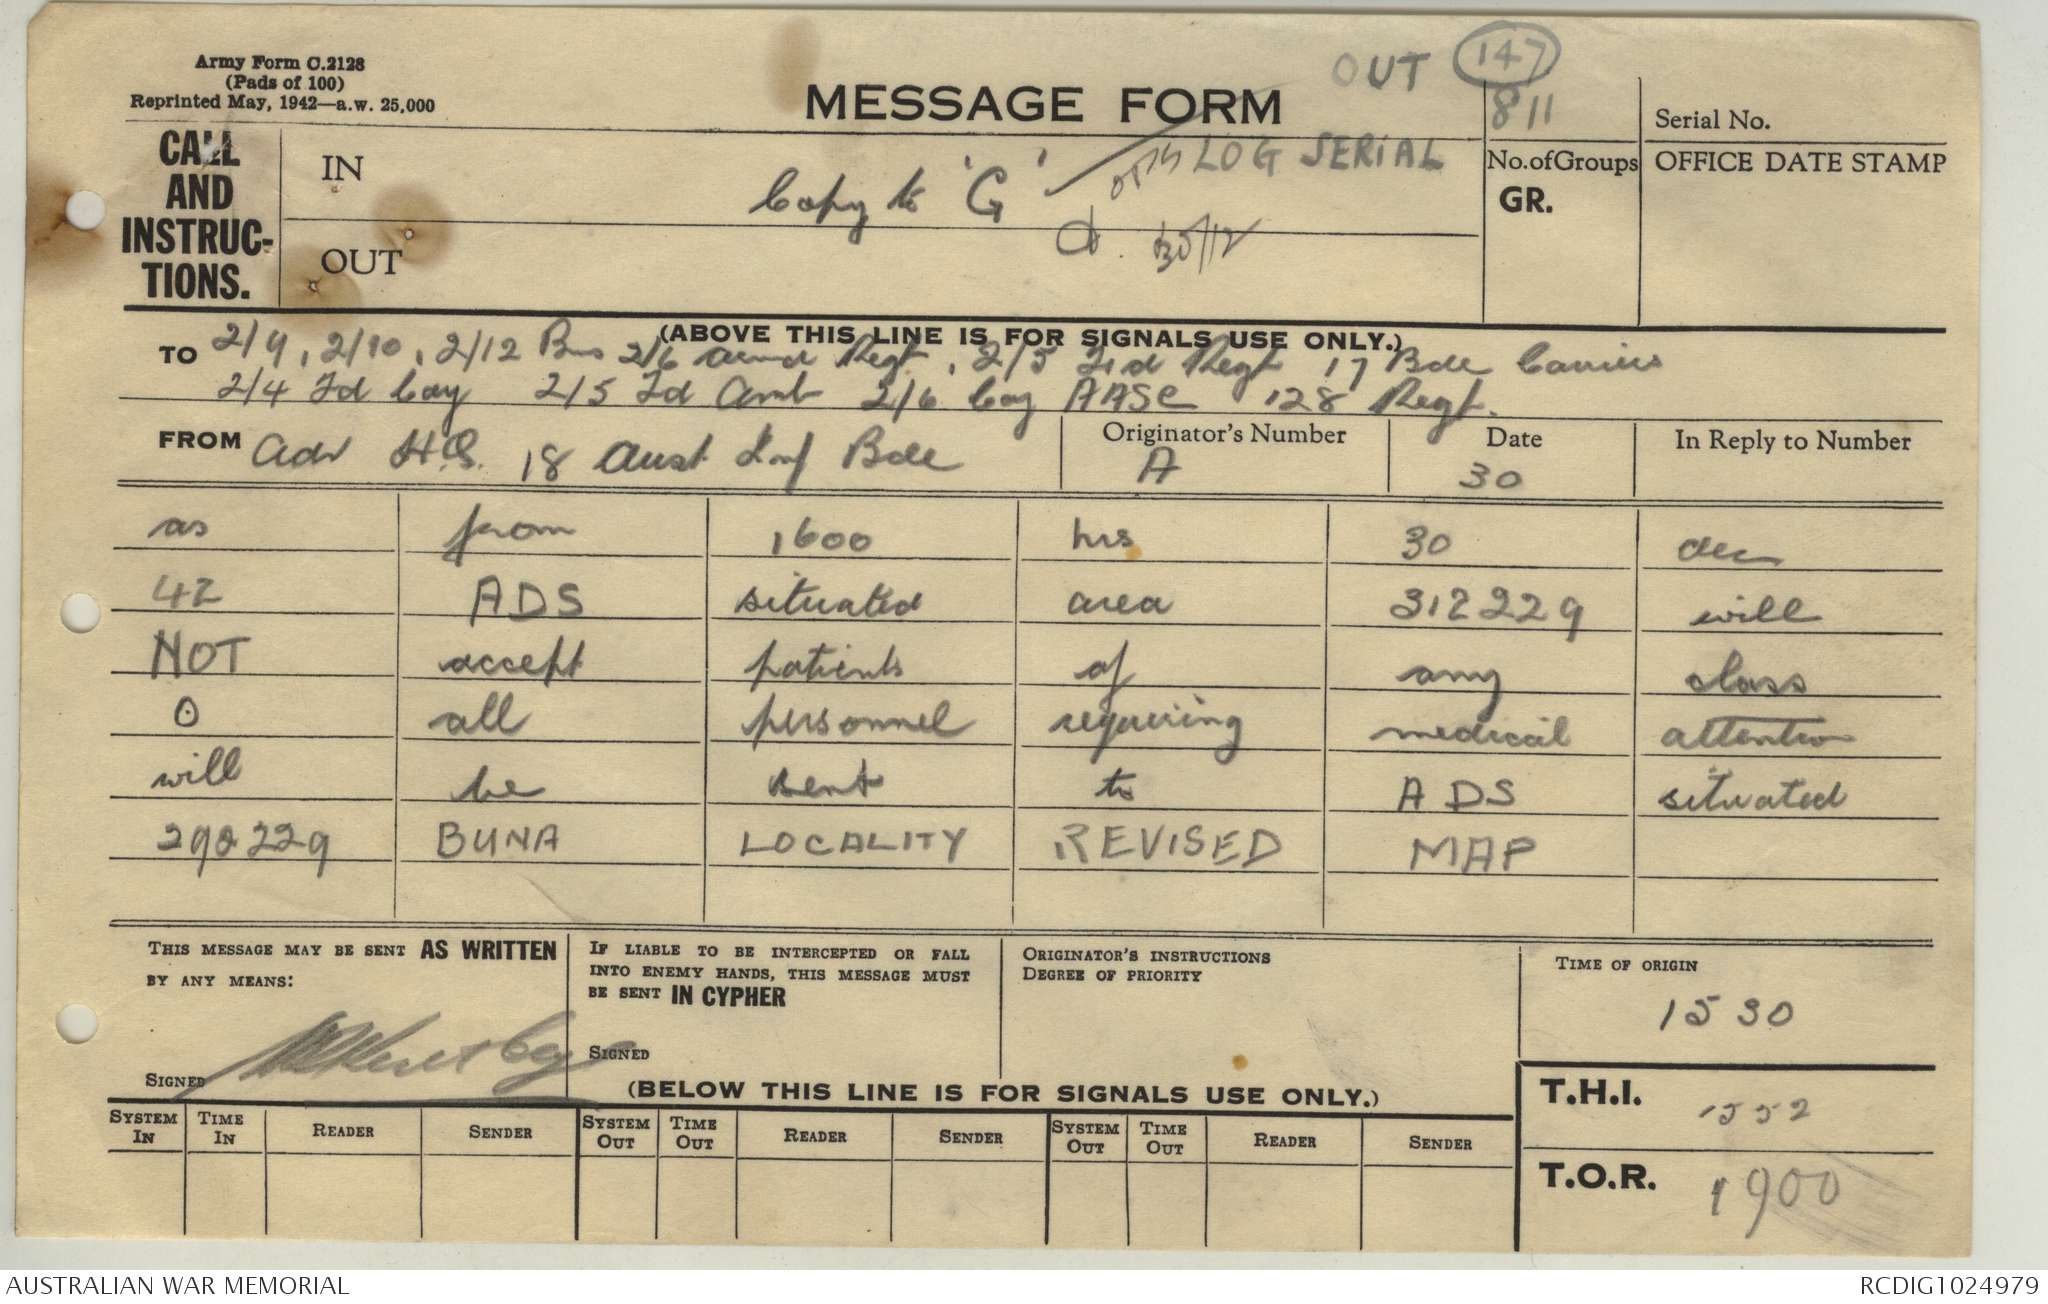 Army Form C.2128
(Pads of 100)
Reprinted May, 1942—A.W. 25,000
MESSAGE FORM
OUT 147
811
Serial No.
CALL AND INSTRUC-TIONS.
IN
OUT
Copy to 'G'
LOG SERIAL
30/12
No. of Groups
GR.
OFFICE DATE STAMP
(ABOVE THIS LINE IS FOR SIGNALS USE ONLY.)
TO 2/9, 2/10, 2/12 Bns 2/6 Armd Regt, 2/5 Fd Regt 17 Bde Carriers
2/4 Fd Coy 2/5 Fd Amb 2/6 Coy AASC 128 Regt.
FROM Adv H.Q. 18 Aust Inf Bde
Originator's Number
A
Date
30
In Reply to Number
as from 1600 hrs 30 dec
42 ADS situated area 312229 will
NOT accept patients of any class
O all personnel requiring medical attention
will be sent to ADS situated
292229 BUNA LOCALITY REVISED MAP
THIS MESSAGE MAY BE SENT AS WRITTEN
BY ANY MEANS:
SIGNED
IF LIABLE TO BE INTERCEPTED OR FALL
INTO ENEMY HANDS, THIS MESSAGE MUST
BE SENT IN CYPHER
SIGNED
ORIGINATOR'S INSTRUCTIONS
DEGREE OF PRIORITY
TIME OF ORIGIN
1530
(BELOW THIS LINE IS FOR SIGNALS USE ONLY.)
T.H.I. 1552
T.O.R. 1900
SYSTEM IN TIME IN READER SENDER SYSTEM OUT TIME OUT READER SENDER SYSTEM OUT TIME OUT READER SENDER
AUSTRALIAN WAR MEMORIAL
RCDIG1024979